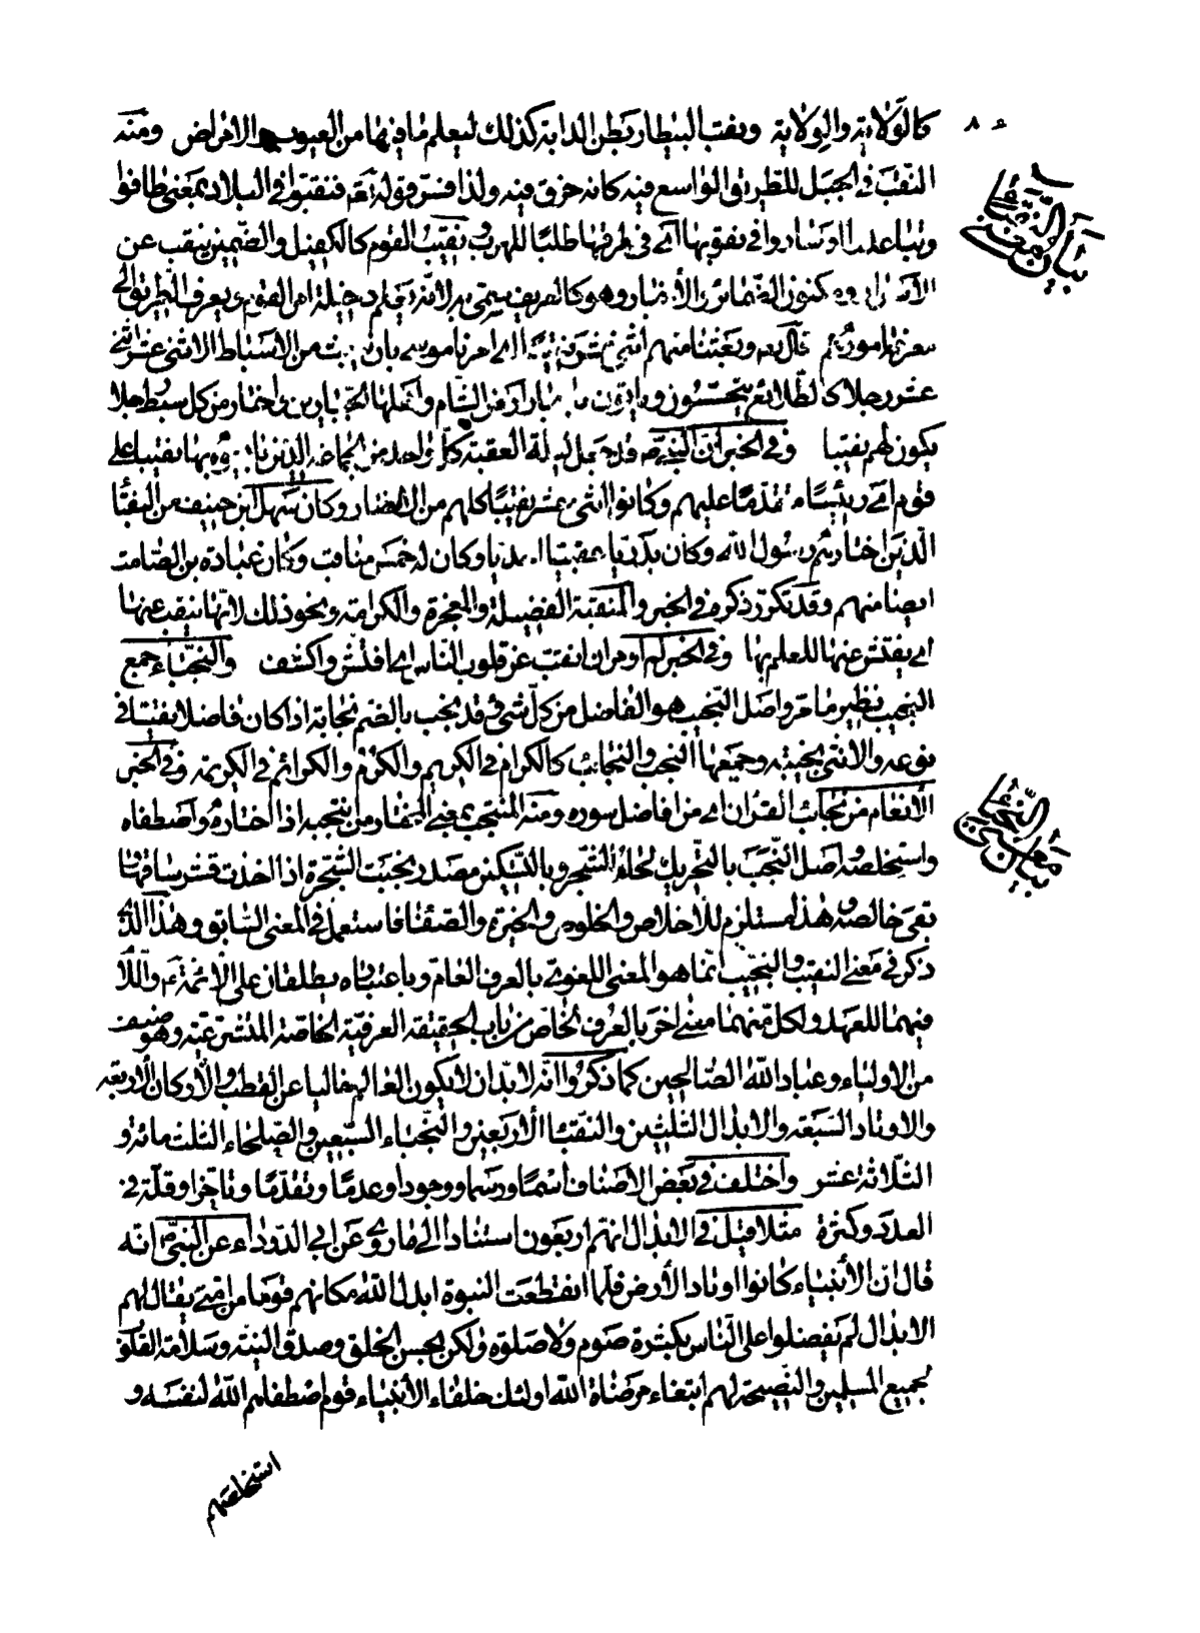 كالوَلاية والوِلاية ونقب البيطار بطن الدابة كذلك ليعلم ما فيها من العيوب والامراض ومنه
النقب في الجبل للطريق الواسع فيه كانه خرق فيه ولذا فسّر قوله تعالى فنقبوا في البلاد بمعنى طافوا
وتباعدوا وساروا في نقوبها اى في طرقها طلبا للهرب ونقيب القوم كالكفيل والضمين ينقب عن
الاسرار ومكنون الضمائر والأضمار وهو كالعريف سمّى به لانّه يعلم دخيلة امر القوم ويعرف الطريق الى
معرفة امورهم قال تعالى وبعثنا منهم اثنى عشر نقيبا اى امرنا موسى بان يبعث من الاسباط الاثنى عشر اثنى
عشر رجلا كالطلائع يتجسّسون وياتون باخبار ارض الشام واهلها الجبارين فاختار من كل سبط رجلا
يكون لهم نقيبا وفي الخبر انّ النبي ص قد جعل ليلة العقبة كلّ واحد من الجماعة الذين بايعوه بها نقيبا على
قوم اى رئيسا مقدّما عليهم وكانوا اثنى عشر نقيبا كلهم من الانصار وكان سهل ابن حنيف من النقبا
الّذين اختارهم رسول الله وكان بدريّا عقبيّا احديّا وكان له خمس مناقب وكان عبادة بن الصّامت
ايضا منهم وقد تكرّر ذكره في الخبر والمنقبة الفضيلة والمفخرة والكرامة ونحو ذلك لانّها ينقب عنها
اى يفتش عنها للعلم بها وفي الخبر لم اومر ان انقب عن قلوب الناس اى افتّش واكشف والنجباء جمع
النجيب نظير ما مرّ واصل النجيب هو الفاضل من كلّ شئ وقد نجب بالضم نجابة اذا كان فاضلا نفيسا في
نوعه والانثى نجيبة وجمعها النجب والنجائب كالكرام في الكريم والكرم والكرائم في الكريمة وفي الخبر
الأنعام من نجائب القران اى من افاضل سوره ومنه المنتجب بمعنى المختار من انتجبه اذا اختاره واصطفاه
واستخلصه واصل النّجَب بالتحريك لحاء الشّجر وبالتسكين مصدر نجبت الشّجرة اذا اخذت قشر ساقها
بقى خالصه وهذا مستلزم للاخلاص والخلوص والخيرة والصّفا فاستعمل في المعنى السّابق وهذا الّذى
ذكر في معنى النقيب والنجيب انّما هو المعنى اللغوى بالعرف العام وباعتباره يطلقان على الائمة ع واللّام
فيهما للعهد ولكلّ منهما معنى اخر بالعرف الخاص من باب الحقيقة العرفيّة الخاصة المتشرّعية وهو صنف
من الاولياء وعباد الله الصّالحين كما ذكروا انّه لا بدّ ان لا يكون العالم خاليا عن القطب والأركان الأربعة
والاوتاد السّبعة والابدال الثّلثين والنقبا الأربعين والنّجباء السّبعين والصّلحاء الثلث مائة و
الثّلاثة عشر واختلف في بعض الاصناف اسمًا ورسما ووجودا وعدمًا وتقدّمًا وتاخّرا وقلّة في
العدد وكثرة مثلا قيل في الابدال انهم اربعون استنادا الى ما روى عن ابى الدّرداء عن النبىّ ص انّه
قال انّ الأنبياء كانوا اوتاد الأرض فلمّا انقطعت النبوة ابدل الله مكانهم قوما من امّتى يقال لهم
الابدال لم يفضلوا على النّاس بكثرة صوم ولا صلوة ولكن بحسن الخلق وصدق النيّة وسلامة القلوب
لجميع المسلمين والنصيحة لهم ابتغاء مرضاة الله اولئك خلفاء الأنبياء قوم اصطفاهم الله لنفسه و
استخلصهم
بيان معنى النقباء
بيان معنى النّجباء